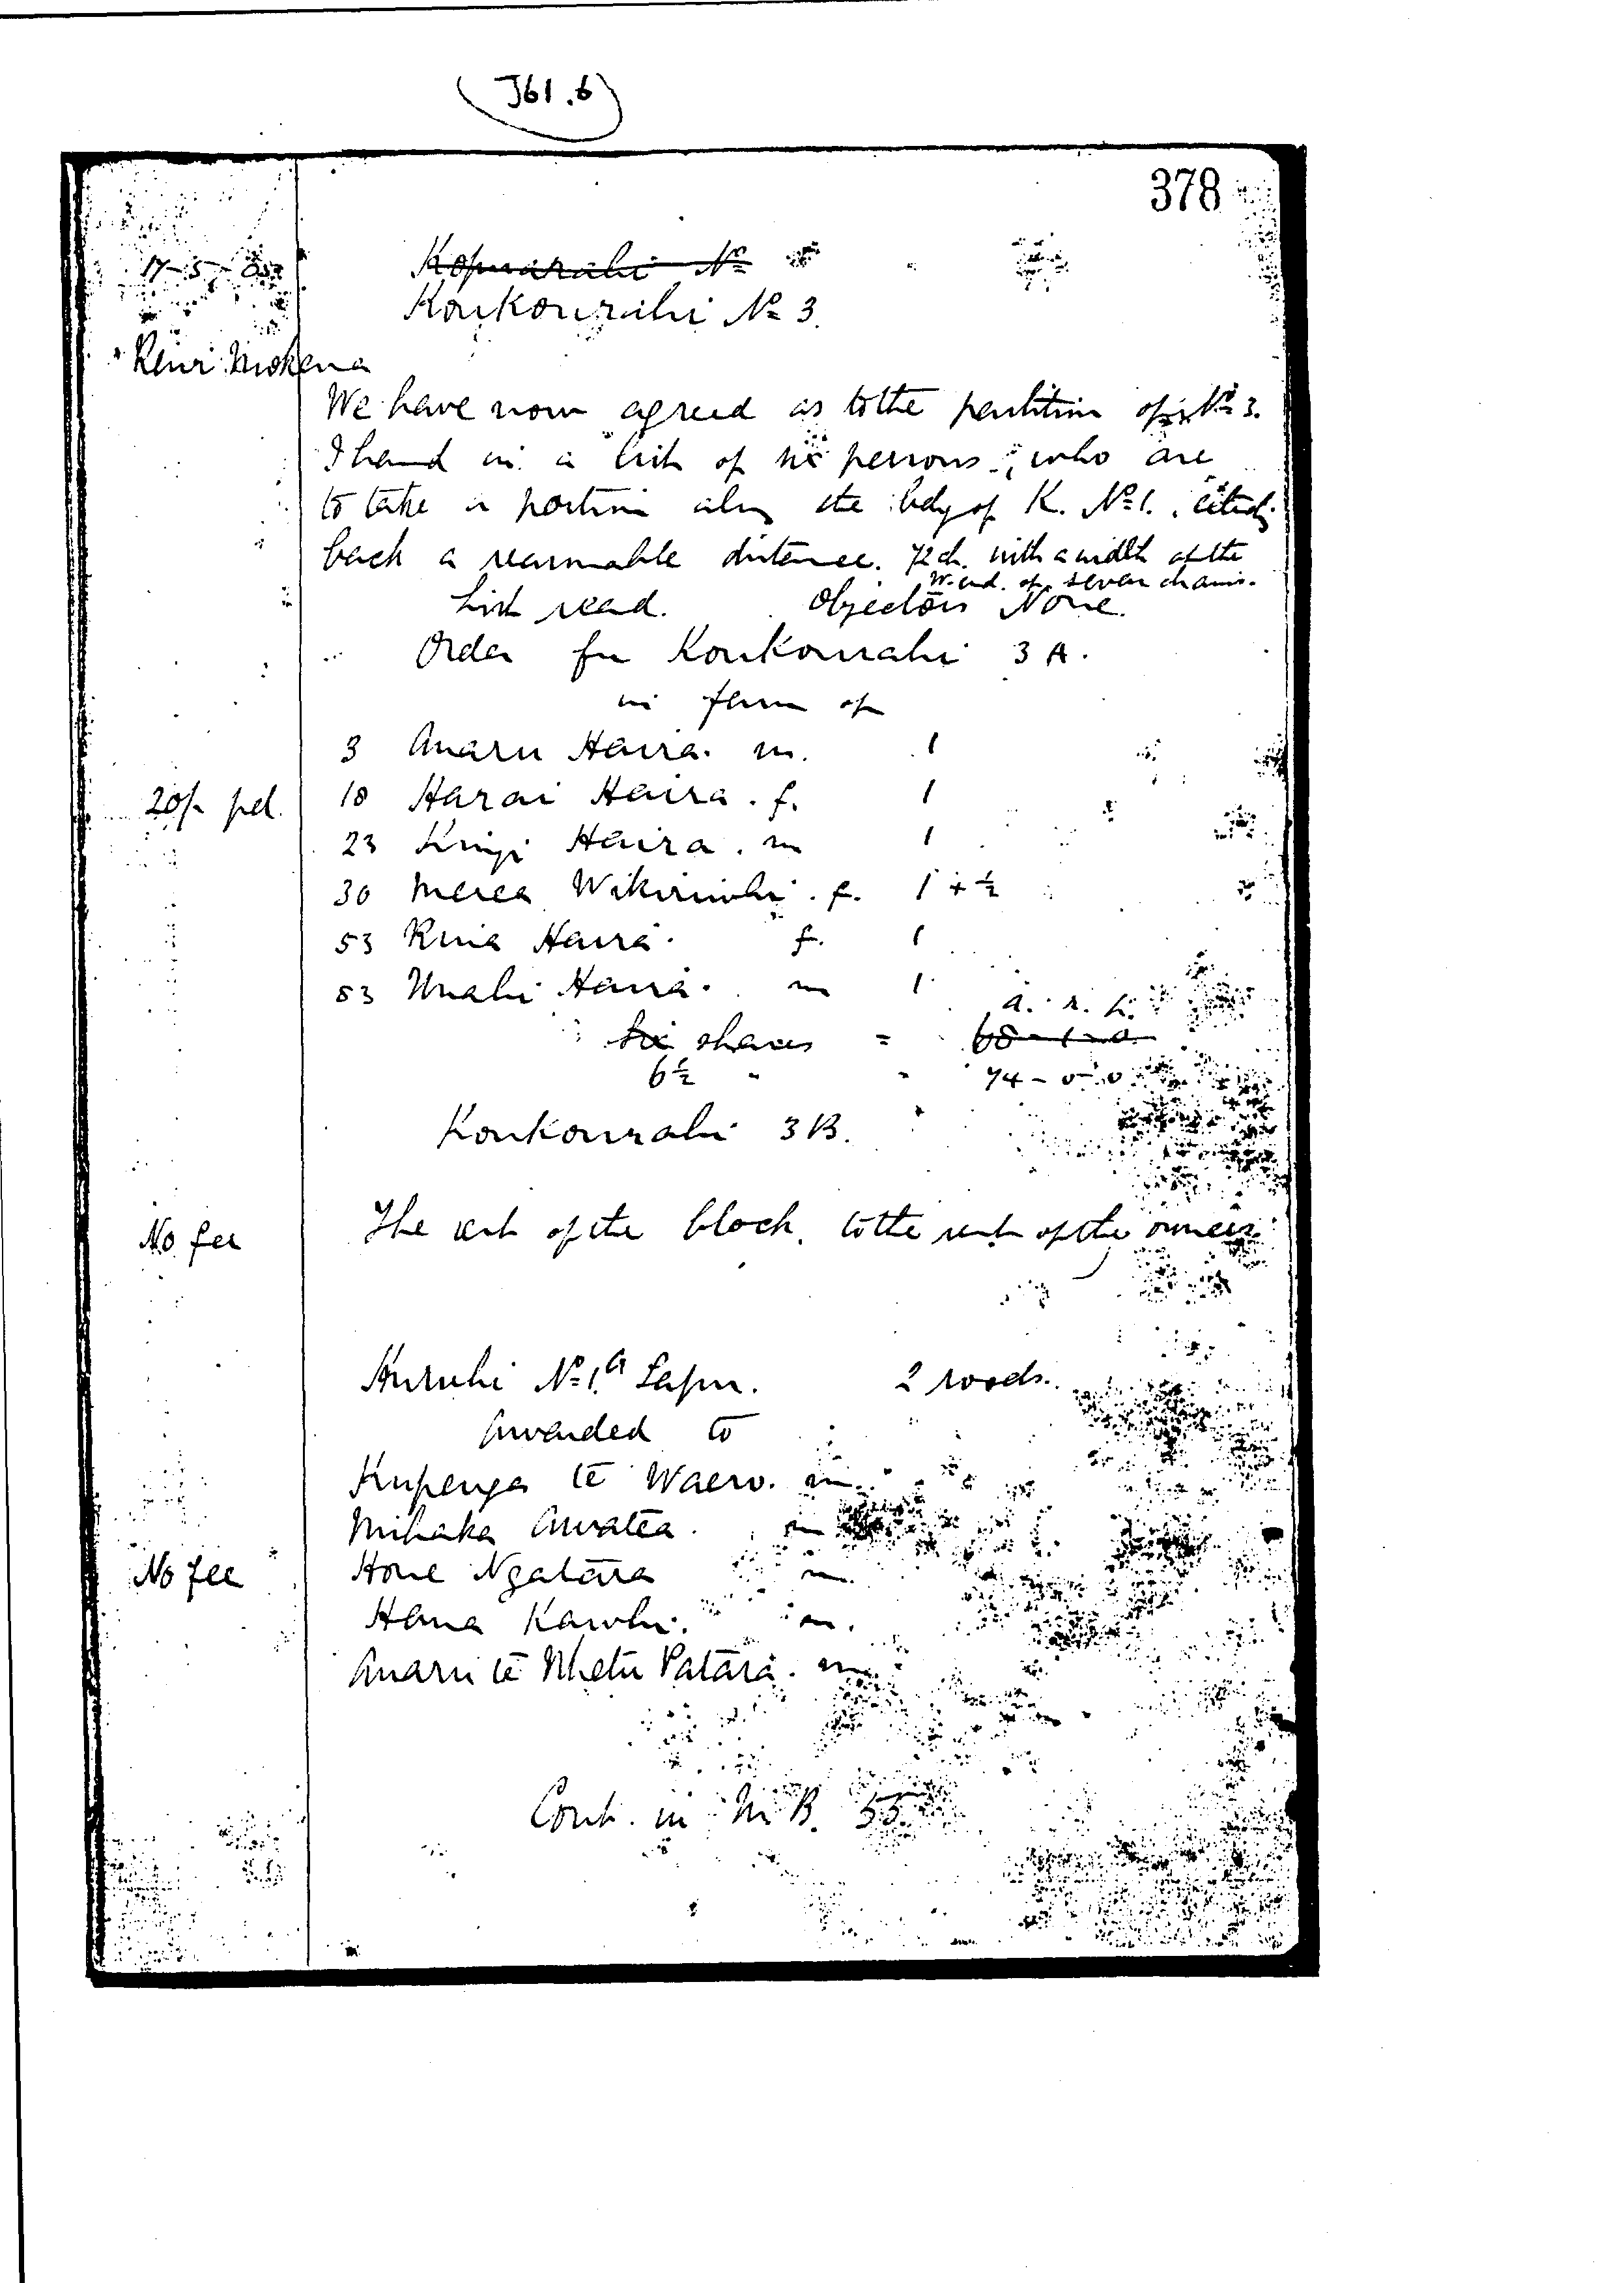 J61.6
378
17-5-
Kopuarahi No
Koukourahi No 3.
Reiri Mokena
We have now agreed as to the partition of No 3.
I hand in a list of six persons, who are
to take a portion along the bdy of K. No 1.
back a reasonable distance. 72 ch. with a width at the
W. end. of seven chains.
List read. Objectors None.
Order for Koukourahi 3 A.
in favr of
3 Anaru Haira. m. 1
20/- pd. 18 Harai Haira. f. 1
23 Kingi Haira. m 1
30 Merea Wikiriwhi. f. 1 + ½
53 Rina Haira. f. 1
53 Unahi Haira. m 1
a. r. p.
Six shares = 68-1-0
6½ " " 74-0-0
Koukourahi 3B.
No fee The rest of the block, to the rest of the owners
Huruhi No 1A Tapu. 2 roods.
Awarded to
Kupenga te Waero. m
Mihaka Awatea. m
No fee Hone Ngatara m
Hana Kawhi. m.
Anaru te Whetu Patara. m
Cont. in M.B. 55